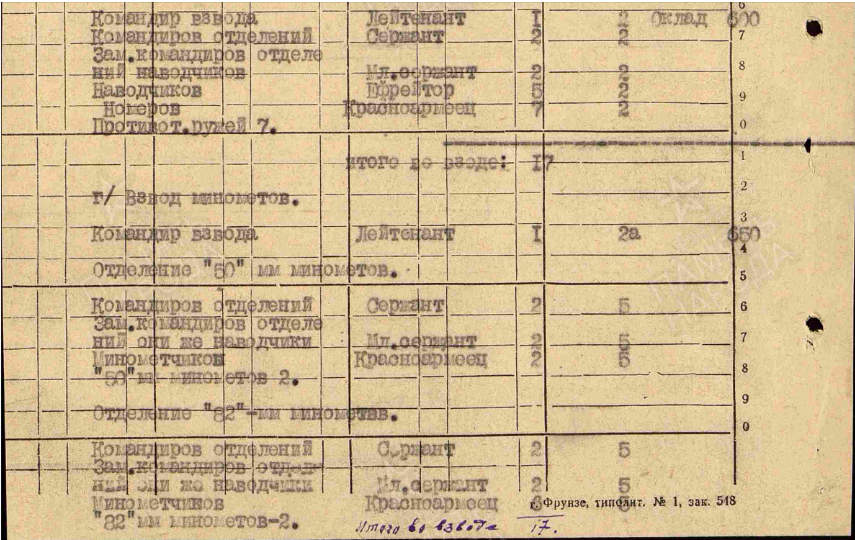 Командир взвода Лейтенант I 2 Оклад 600
Командиров отделений Сержант 2 2 7
Зам.командиров отделе
ний наводчиков Мл.сержант 2 2 8
Наводчиков Ефрейтор 5 2 9
Номеров Красноармеец 7 2
Противот.ружей 7. 0
итого во взводе: I7 1
г/ Взвод минометов. 2
3
Командир взвода Лейтенант I 2а 650
4
Отделение "50" мм минометов. 5
Командиров отделений Сержант 2 5 6
Зам.командиров отделе
ний они же наводчики Мл.сержант 2 5 7
Минометчиков Красноармеец 2 5
"50"мм минометов 2. 8
9
Отделение "82"-мм минометов.
0
Командиров отделений Сержант 2 5
Зам.командиров отделе
ний они же наводчики Мл.сержант 2 5
Минометчиков Красноармеец 5
г. Фрунзе, типолит. № 1, зак. 548
"82"мм минометов-2.
Итого во взводе 17.
ПАМЯТЬ
НАРОДА